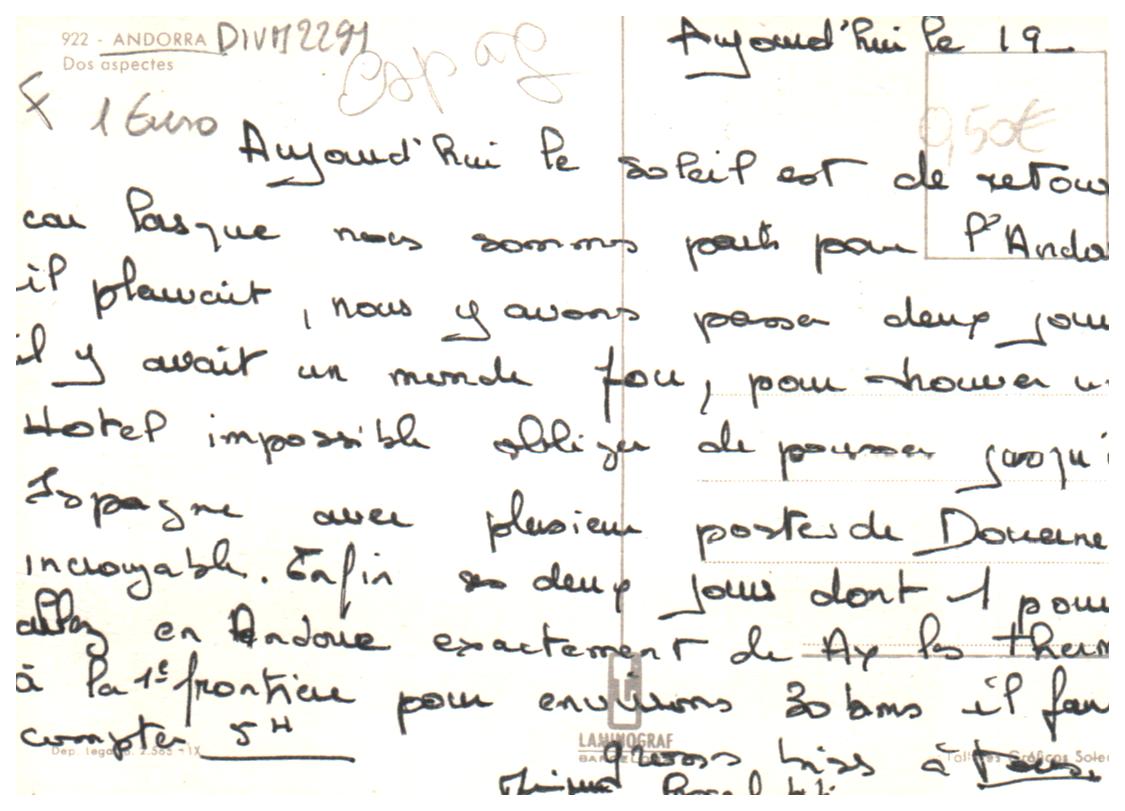 922 - ANDORRA DIVM2291
Dos aspectes
Espag
F 1 Euro
0,50€
Aujourd'hui le 19_
Aujourd'hui le soleil est de retour
car lorsque nous sommes partis pour l'Ando
il pleuvait, nous y avons passer deux jou
il y avait un monde fou, pour trouver u
Hotel impossible obliger de pousser jusqu'
Espagne avec plusieur postes de Douane
incroyable. Enfin deux jours dont 1 pour
allez en Andorre exactement de Ax les therm
à la 1e frontière pour environs 30 kms il fau
compter 5H
Dep. legal B. 2.585 - IX
LAMINOGRAF
BARCELONA
Talleres Gráficos Soler
grosses bises à Tous.